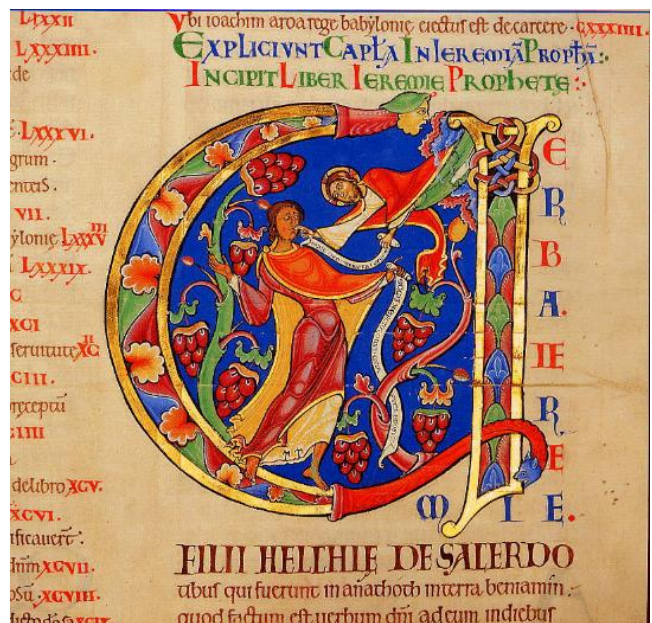 LXXXII
LXXXIIII.
de
LXXXVI.
grum.
VII.
ẏlonię LXXXV III
LXXXIX.
XCI
seruitute XC II
CIII.
CIIII
delibro XCV.
XCVI.
XCVII.
XCVIII.
Vbi ioachim aroarege babẏlonię eiectus est decarcere. CXXXIIII.
EXPLICIVNT CAPŁA IN IEREMIĀ PROPħĀ:
INCIPIT LIBER IEREMIE PROPHETE:
E
R
B
A.
IE
R
E
M I E.
FILII HELCHIĘ DE SACERDO
tibus qui fuerunt in anathoth interra beniamin.
quod factum est uerbum dn̄i adeum indiebus